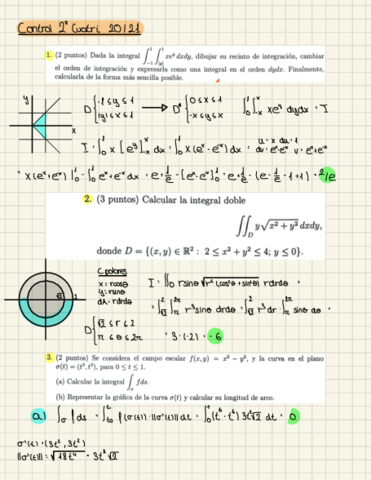 Control 2º Cuatri 20/21
1. (2 puntos) Dada la integral ∫₋₁¹ ∫|y|¹ xeʸ dxdy, dibujar su recinto de integración, cambiar
el orden de integración y expresarla como una integral en el orden dydx. Finalmente,
calcularla de la forma más sencilla posible.
y
x
D { -1 ≤ y ≤ 1
|y| ≤ x ≤ 1
→ D* { 0 ≤ x ≤ 1
-x ≤ y ≤ x
∫₀¹ ∫₋ₓˣ xeʸ dydx = I
I = ∫₀¹ x [eʸ]₋ₓˣ dx = ∫₀¹ x (eˣ - e⁻ˣ) dx =
u = x du = 1
dv = eˣ - e⁻ˣ v = eˣ + e⁻ˣ
= x (eˣ + e⁻ˣ) |₀¹ - ∫₀¹ eˣ + e⁻ˣ dx = e + 1/e - [eˣ - e⁻ˣ]₀¹ = e + 1/e - (e - 1/e - 1 + 1) = 2/e
2. (3 puntos) Calcular la integral doble
∫∫_D y√(x² + y²) dxdy,
donde D = {(x, y) ∈ ℝ² : 2 ≤ x² + y² ≤ 4; y ≤ 0}.
C. polares
x = r cosθ
y = r sinθ
dA = r drdθ
I = ∫∫_D r sinθ √(r² (cos²θ + sin²θ)) r drdθ =
= ∫√2² ∫π²π r³ sinθ drdθ = ∫√2² r³ dr · ∫π²π sinθ dθ =
D { √2 ≤ r ≤ 2
π ≤ θ ≤ 2π
= 3 · (-2) = -6
3. (2 puntos) Se considera el campo escalar f(x, y) = x² − y², y la curva en el plano
σ(t) = (t³, t³), para 0 ≤ t ≤ 1.
(a) Calcular la integral ∫_σ f ds.
(b) Representar la gráfica de la curva σ(t) y calcular su longitud de arco.
a) ∫_σ f ds = ∫ f(σ(t)) · ||σ'(t)|| dt = ∫₀¹ (t⁶ - t⁶) 3t²√2 dt = 0
σ'(t) = (3t², 3t²)
||σ'(t)|| = √(18t⁴) = 3t²√2